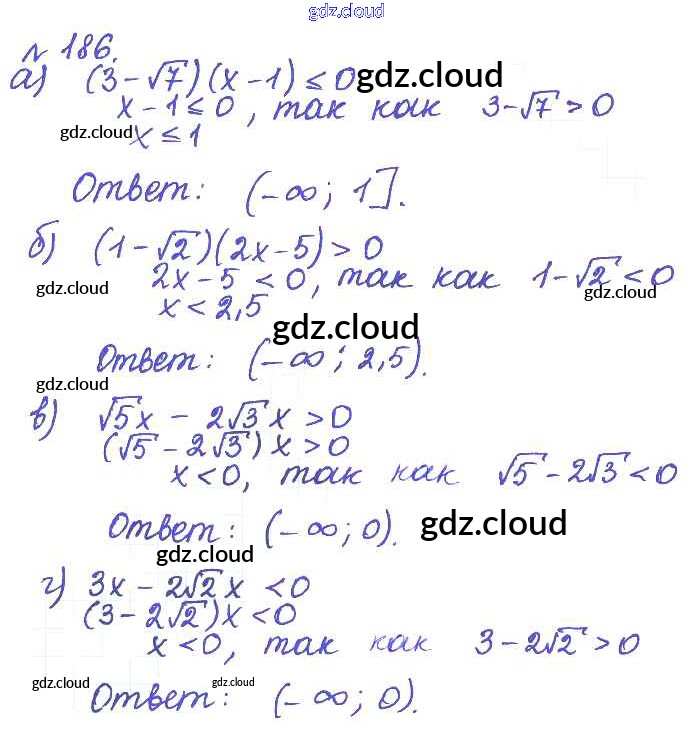 gdz.cloud
№ 186.
а) (3-√7)(x-1) ≤ 0 gdz.cloud
x-1 ≤ 0, так как 3-√7 > 0
gdz.cloud x ≤ 1
Ответ: (-∞; 1].
б) (1-√2)(2x-5) > 0
2x-5 < 0, так как 1-√2 < 0
gdz.cloud x < 2,5 gdz.cloud
gdz.cloud
Ответ: (-∞; 2,5).
gdz.cloud
в) √5x - 2√3x > 0
(√5 - 2√3)x > 0
x < 0, так как √5 - 2√3 < 0
Ответ: (-∞; 0). gdz.cloud
gdz.cloud
г) 3x - 2√2x < 0
(3 - 2√2)x < 0
x < 0, так как 3 - 2√2 > 0
gdz.cloud gdz.cloud
Ответ: (-∞; 0).